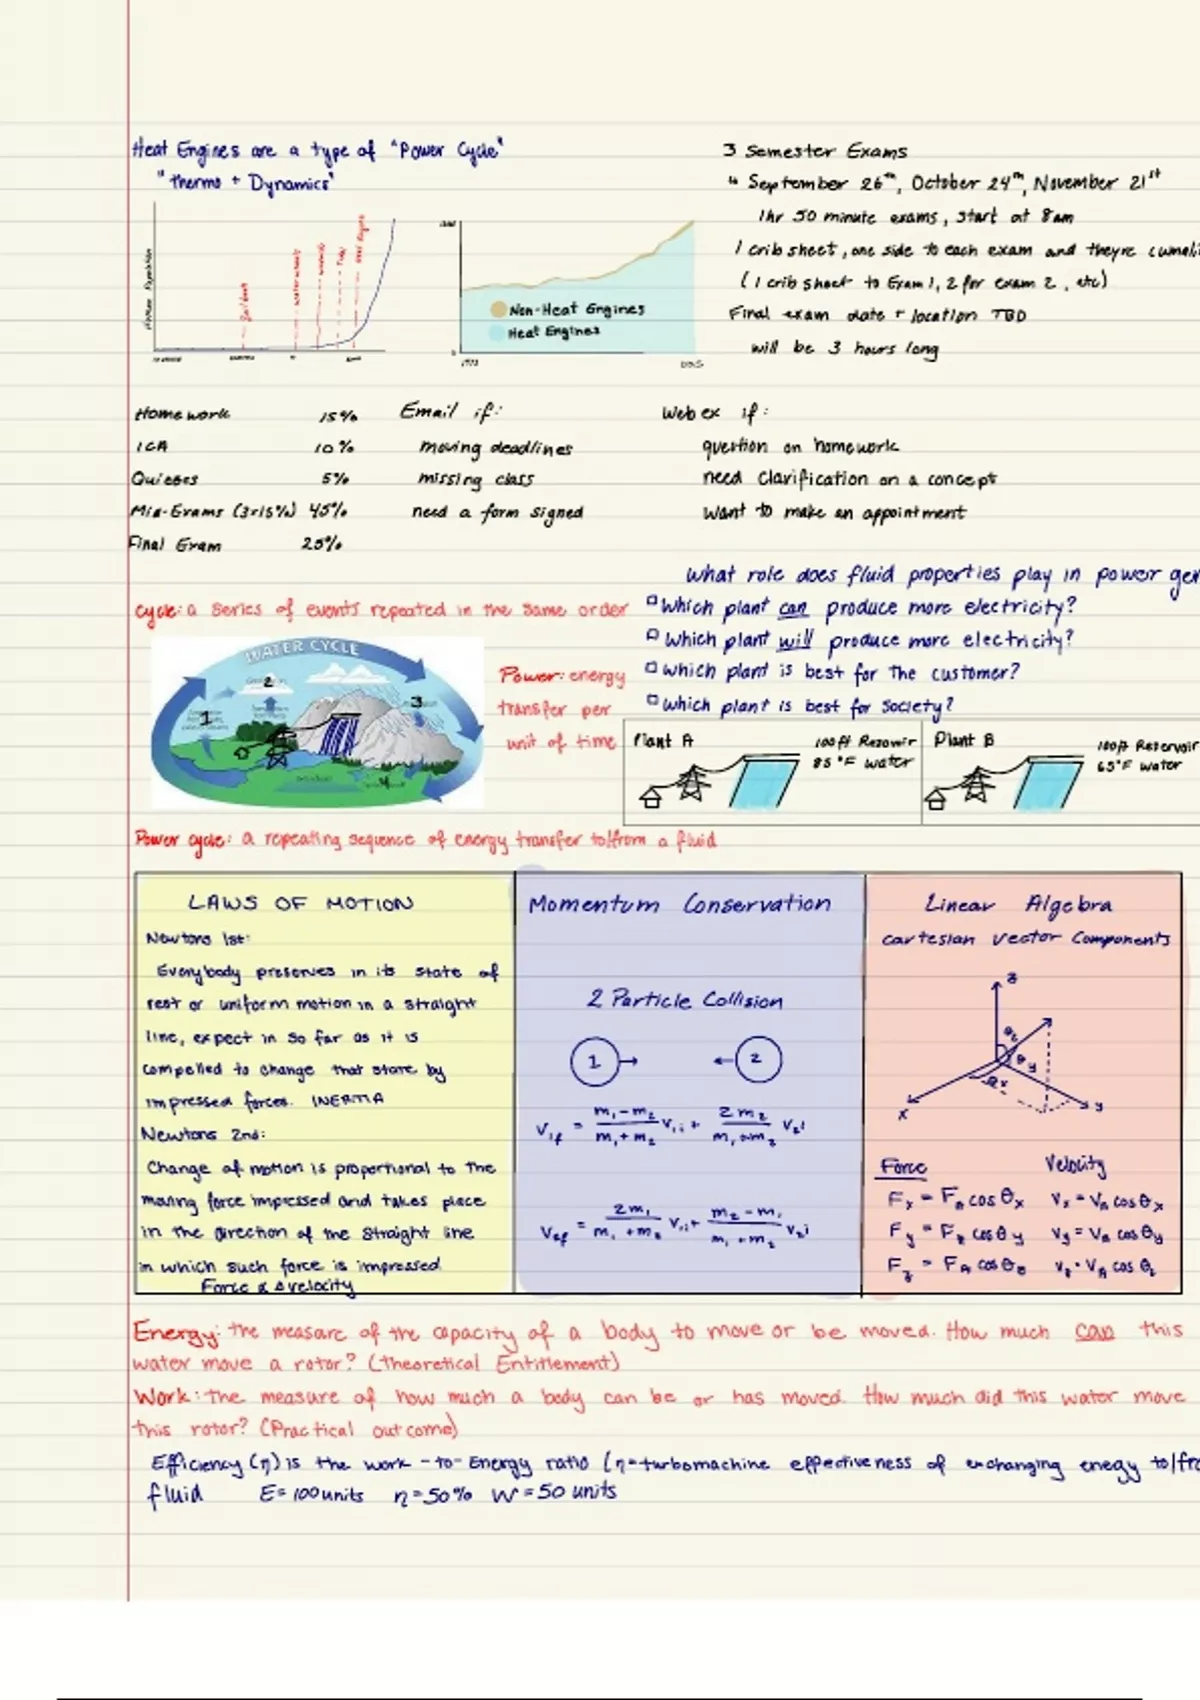 Heat Engines are a type of "Power Cycle"
"thermo + Dynamics"
Non-Heat Engines
Heat Engines
3 Semester Exams
September 26th, October 24th, November 21st
1hr 50 minute exams, start at 8am
1 crib sheet, one side to each exam and theyre cumali
(1 crib sheet to Exam 1, 2 for exam 2, etc)
Final exam date + location TBD
will be 3 hours long
Homework 15%
ICA 10%
Quizzes 5%
Mid-Exams (3x15%) 45%
Final Exam 25%
Email if:
moving deadlines
missing class
need a form signed
Webex if:
question on homework
need clarification on a concept
want to make an appointment
what role does fluid properties play in power gen
which plant can produce more electricity?
which plant will produce more electricity?
which plant is best for the customer?
which plant is best for society?
cycle: a series of events repeated in the same order
WATER CYCLE
1
2
3
4
Power: energy
transfer per
unit of time
Plant A
100ft Resovoir
85°F water
Plant B
100ft Reservoir
65°F water
Power cycle: a repeating sequence of energy transfer to/from a fluid
LAWS OF MOTION
Newtons 1st:
Everybody preserves in its state of
rest or uniform motion in a straight
line, expect in so far as it is
compelled to change that state by
impressed forces. INERTIA
Newtons 2nd:
Change of motion is proportional to the
moving force impressed and takes place
in the direction of the straight line
in which such force is impressed
Force α Δvelocity
Momentum Conservation
2 Particle Collision
1
2
V1f = m1-m2 / m1+m2 V1i + 2m2 / m1+m2 V2i
V2f = 2m1 / m1+m2 V1i + m2-m1 / m1+m2 V2i
Linear Algebra
cartesian vector components
z
θz
θy
θx
x
y
Force Velocity
Fx = FA cos θx Vx = VA cos θx
Fy = FA cos θy Vy = VA cos θy
Fz = FA cos θz Vz = VA cos θz
Energy: the measure of the capacity of a body to move or be moved. How much can this
water move a rotor? (Theoretical Entitlement)
Work: the measure of how much a body can be or has moved. How much did this water move
this rotor? (Practical outcome)
Efficiency (η) is the work-to-Energy ratio (η=turbomachine effectiveness of exchanging enegy to/fro
fluid E=100units η=50% W=50 units